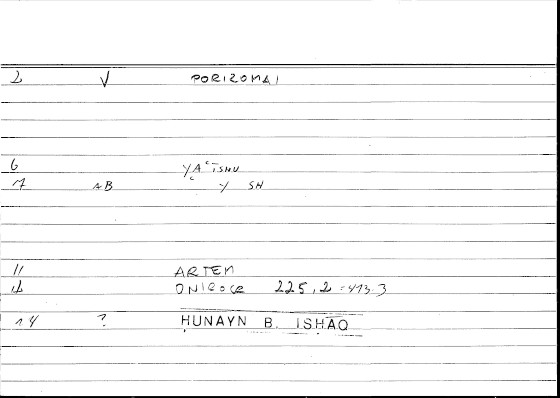 2 √ PORIZOMAI
6 YAʿĪSHU
7 AB ʿ Y SH
11 ARTEM
12 ONIROCR 225,2 = 413.3
14 ? ḤUNAYN B. ISḤĀQ